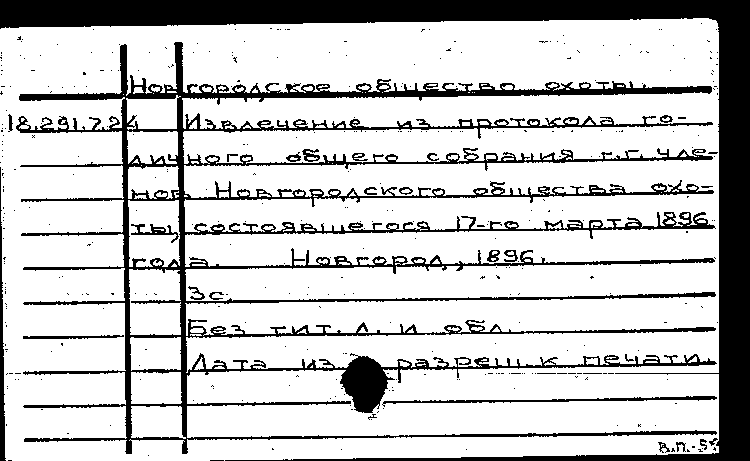 Новгородское общество охоты.
18.291.7.24 Извлечение из протокола го-
дичного общего собрания г.г. чле-
нов Новгородского общества охо-
ты, состоявшегося 17-го марта 1896
года. Новгород, 1896.
3с.
Без тит. л. и обл.
Дата из разреш. к печати.
В.П.-55